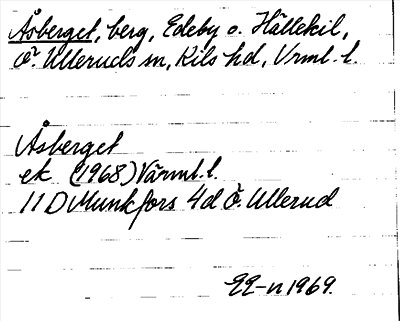 Åsberget, berg, Edeby o. Hällekil,
Ö. Ulleruds sn, Kils hd, Vrml. l.
Åsberget
ek (1968) Värml. l.
11 D Munkfors 4d Ö. Ullerud
1969.